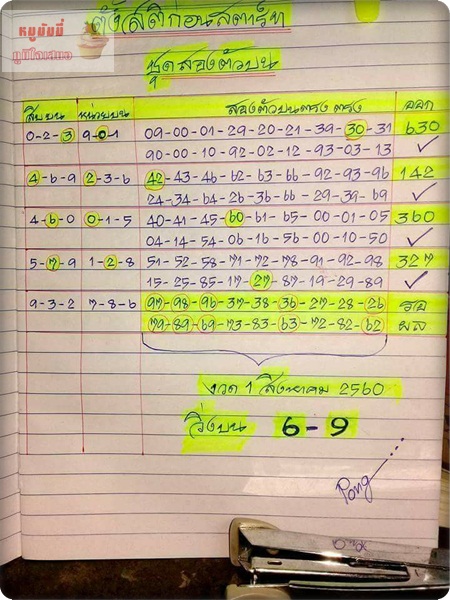 ตั้งสติก่อนสตาร์ท
หมูมันนี่
ชุดสองตัวบน
สิบบน หน่วยบน สองตัวบนตรง ตรง ออก
0-2-3 9-0-1 09-00-01-29-20-21-39-30-31 630
90-00-10-92-02-12-93-03-13 ✓
4-6-9 2-3-6 42-43-46-62-63-66-92-93-96 142
24-34-64-26-36-66-29-39-69 ✓
4-6-0 0-1-5 40-41-45-60-61-65-00-01-05 360
04-14-54-06-16-56-00-10-50 ✓
5-7-9 1-2-8 51-52-58-71-72-78-91-92-98 327
15-25-85-17-27-87-19-29-89 ✓
9-3-2 7-8-6 97-98-96-37-38-36-27-28-26 รอ
79-89-69-73-83-63-72-82-62 ผล
งวด 1 สิงหาคม 2560
วิ่งบน 6-9
Pong